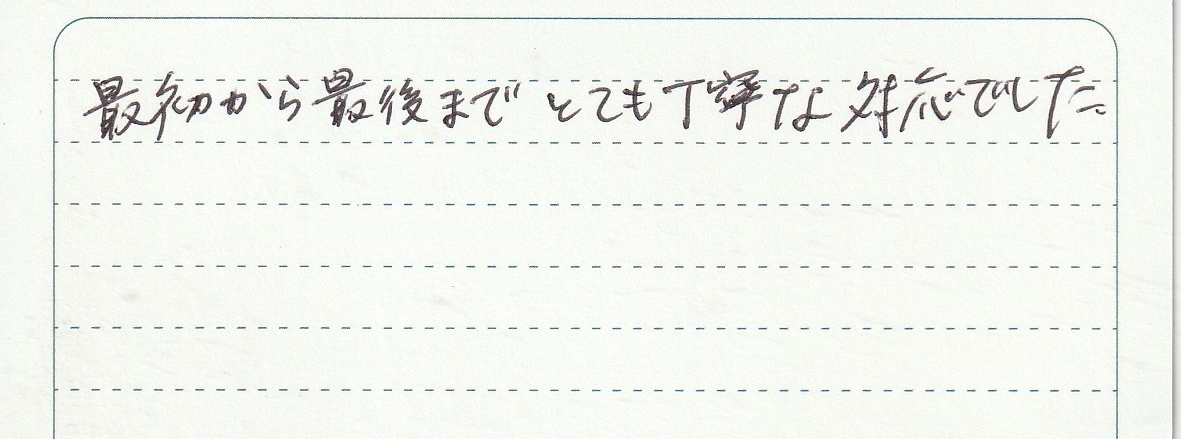 最初から最後まで とても丁寧な対応でした。